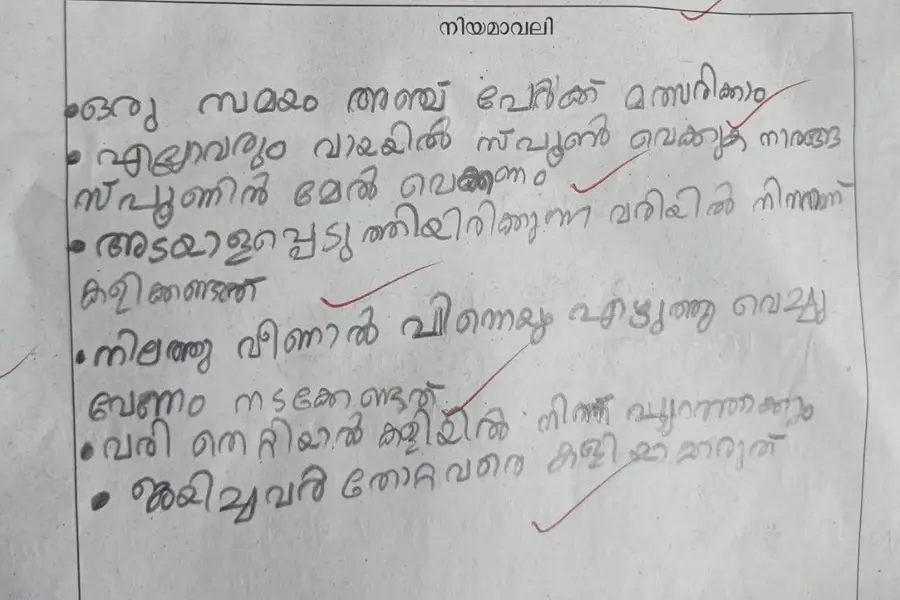 നിയമാവലി
• ഒരു സമയം അഞ്ച് പേർക്ക് മത്സരിക്കാം
• എല്ലാവരും വായയിൽ സ്പൂൺ വെക്കുക നാരങ്ങ
സ്പൂണിൻ മേൽ വെക്കണം
• അടയാളപ്പെടുത്തിയിരിക്കുന്ന വരിയിൽ നിന്നാണ്
കളിക്കണ്ടത്ത്
• നിലത്തു വീണാൽ പിന്നെയും എഴുത്തു വെച്ചു
വേണം നടക്കേണ്ടത്
• വരി തെറ്റിയാൽ കളിയിൽ നിന്ന് പുറത്താക്കും
• ജയിച്ചവർ തോറ്റവരെ കളിയാക്കരുത്